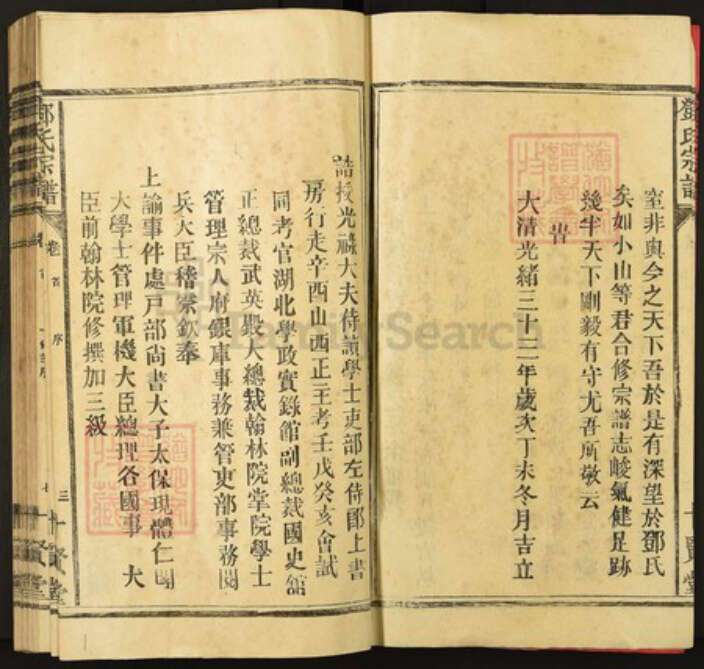 鄧氏宗譜
室非與今之天下吾於是有深望於鄧氏
矣如小山等君合修宗譜志峻氣健足跡
幾半天下剛毅有守尤吾所敬云
峕
大清光緒三十三年歲次丁未冬月吉立
十賢堂
誥授光祿大夫侍讀學士吏部左侍郞上書
房行走辛酉山西正主考壬戌癸亥會試
同考官湖北學政實錄館副總裁國史館
正總裁武英殿大總裁翰林院掌院學士
管理宗人府銀庫事務兼管吏部事務閱
兵大臣稽察欽奉
上諭事件處戸部尙書大子太保現體仁閣
大學士管理軍機大臣總理各國事 大
臣前翰林院修撰加三級
鄧氏宗譜
卷首 序
三
十賢堂
FamilySearch